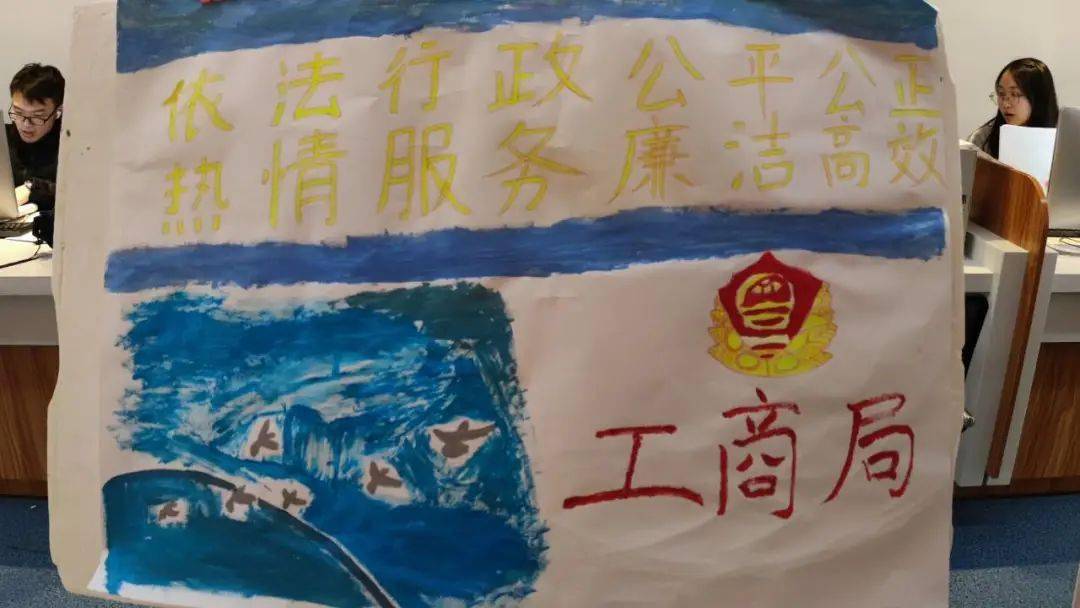 依法行政公平公正
热情服务廉洁高效
工商局